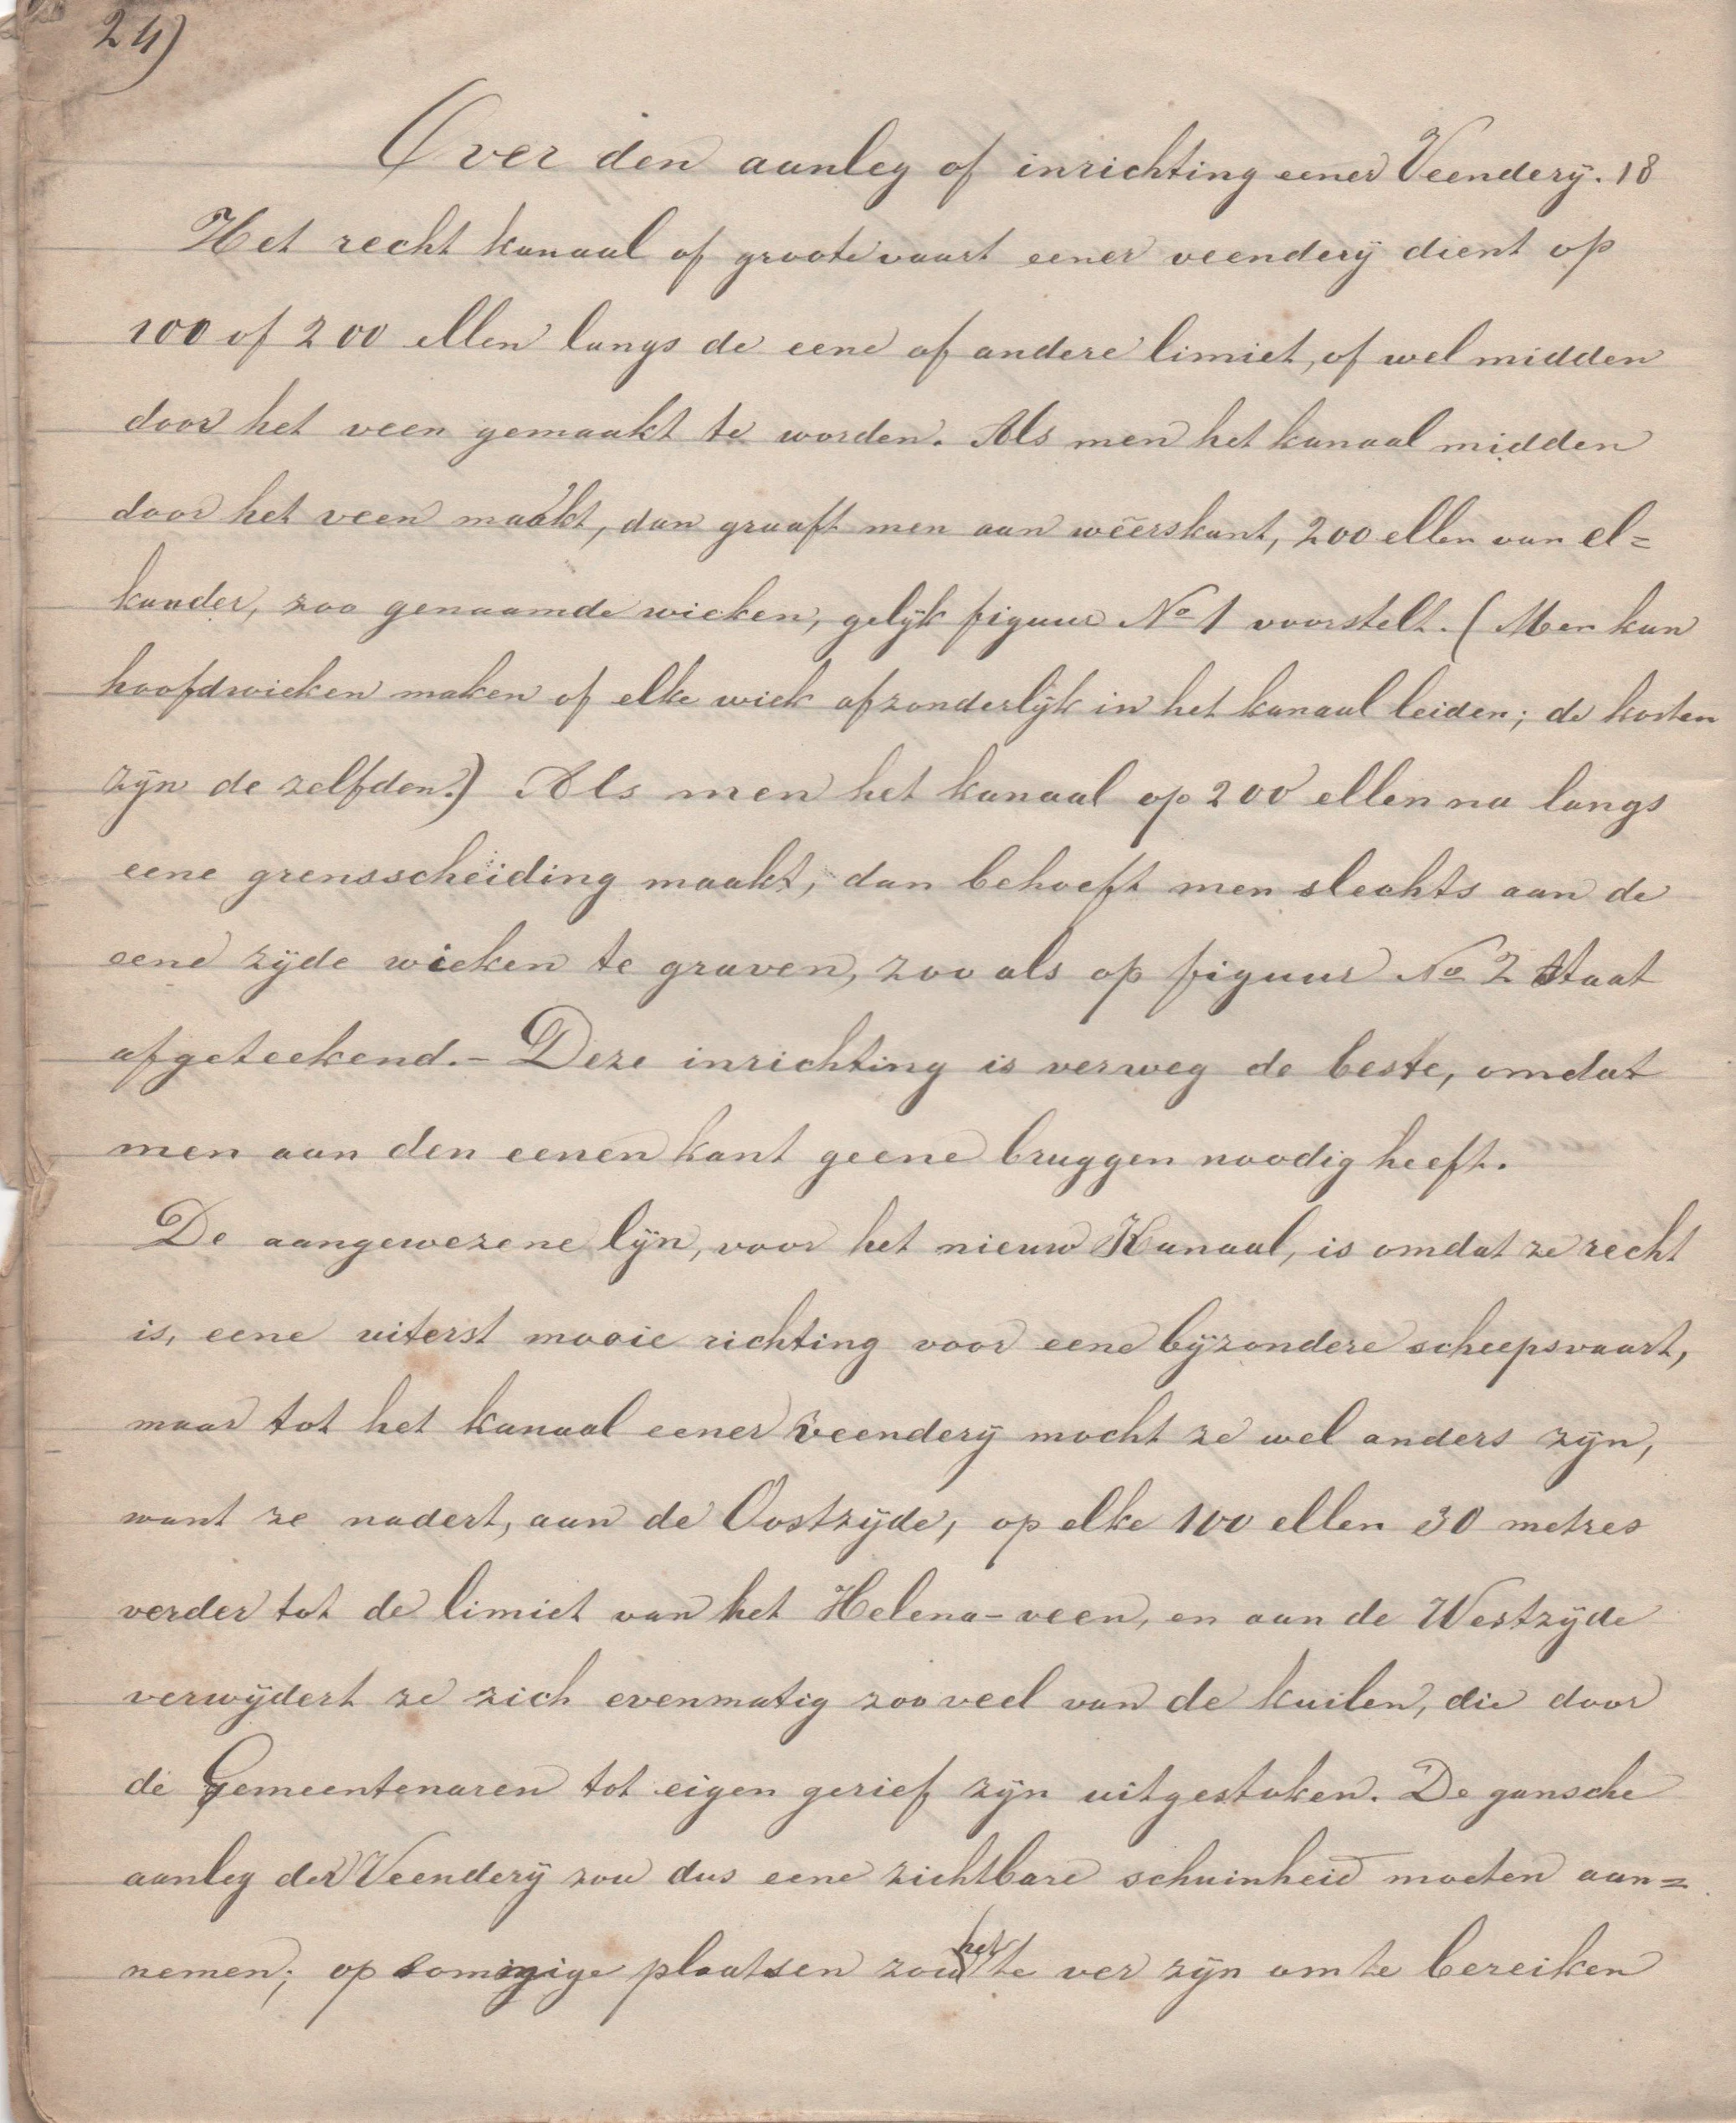 24)
Over den aanleg of inrichting eener Veenderÿ. 18
Het recht kanaal of groote vaart eener veenderÿ dient op
100 of 200 ellen langs de eene of andere limiet, of wel midden
door het veen gemaakt te worden. Als men het kanaal midden
door het veen maakt, dan graaft men aan weêrskant, 200 ellen van el=
kander, zoo genaamde wieken, gelÿk figuur No 1 voorstelt. (Men kan
hoofdwieken maken of elke wiek afzonderlÿk in het kanaal leiden; de kosten
zÿn de zelfden.) Als men het kanaal op 200 ellen na langs
eene grensscheiding maakt, dan behoeft men slechts aan de
eene zÿde wieken te graven, zoo als op figuur No 2 staat
afgeteekend. – Deze inrichting is verweg de beste, omdat
men aan den eenen kant geene bruggen noodig heeft.
De aangewezene lÿn, voor het nieuw Kanaal, is omdat ze recht
is, eene uiterst mooie richting voor eene bÿzondere scheepsvaart,
maar tot het kanaal eener veenderÿ mocht ze wel anders zÿn,
want ze nadert, aan de Oostzÿde, op elke 100 ellen 30 metres
verder tot de limiet van het Helena-veen, en aan de Westzÿde
verwÿdert ze zich evenmatig zoo veel van de kuilen, die door
de Gemeentenaren tot eigen gerief zÿn uitgestoken. De gansche
aanleg der Veenderÿ zou dus eene zichtbare schuinheid moeten aan=
nemen; op sommige plaatsen zou het te ver zÿn om te bereiken